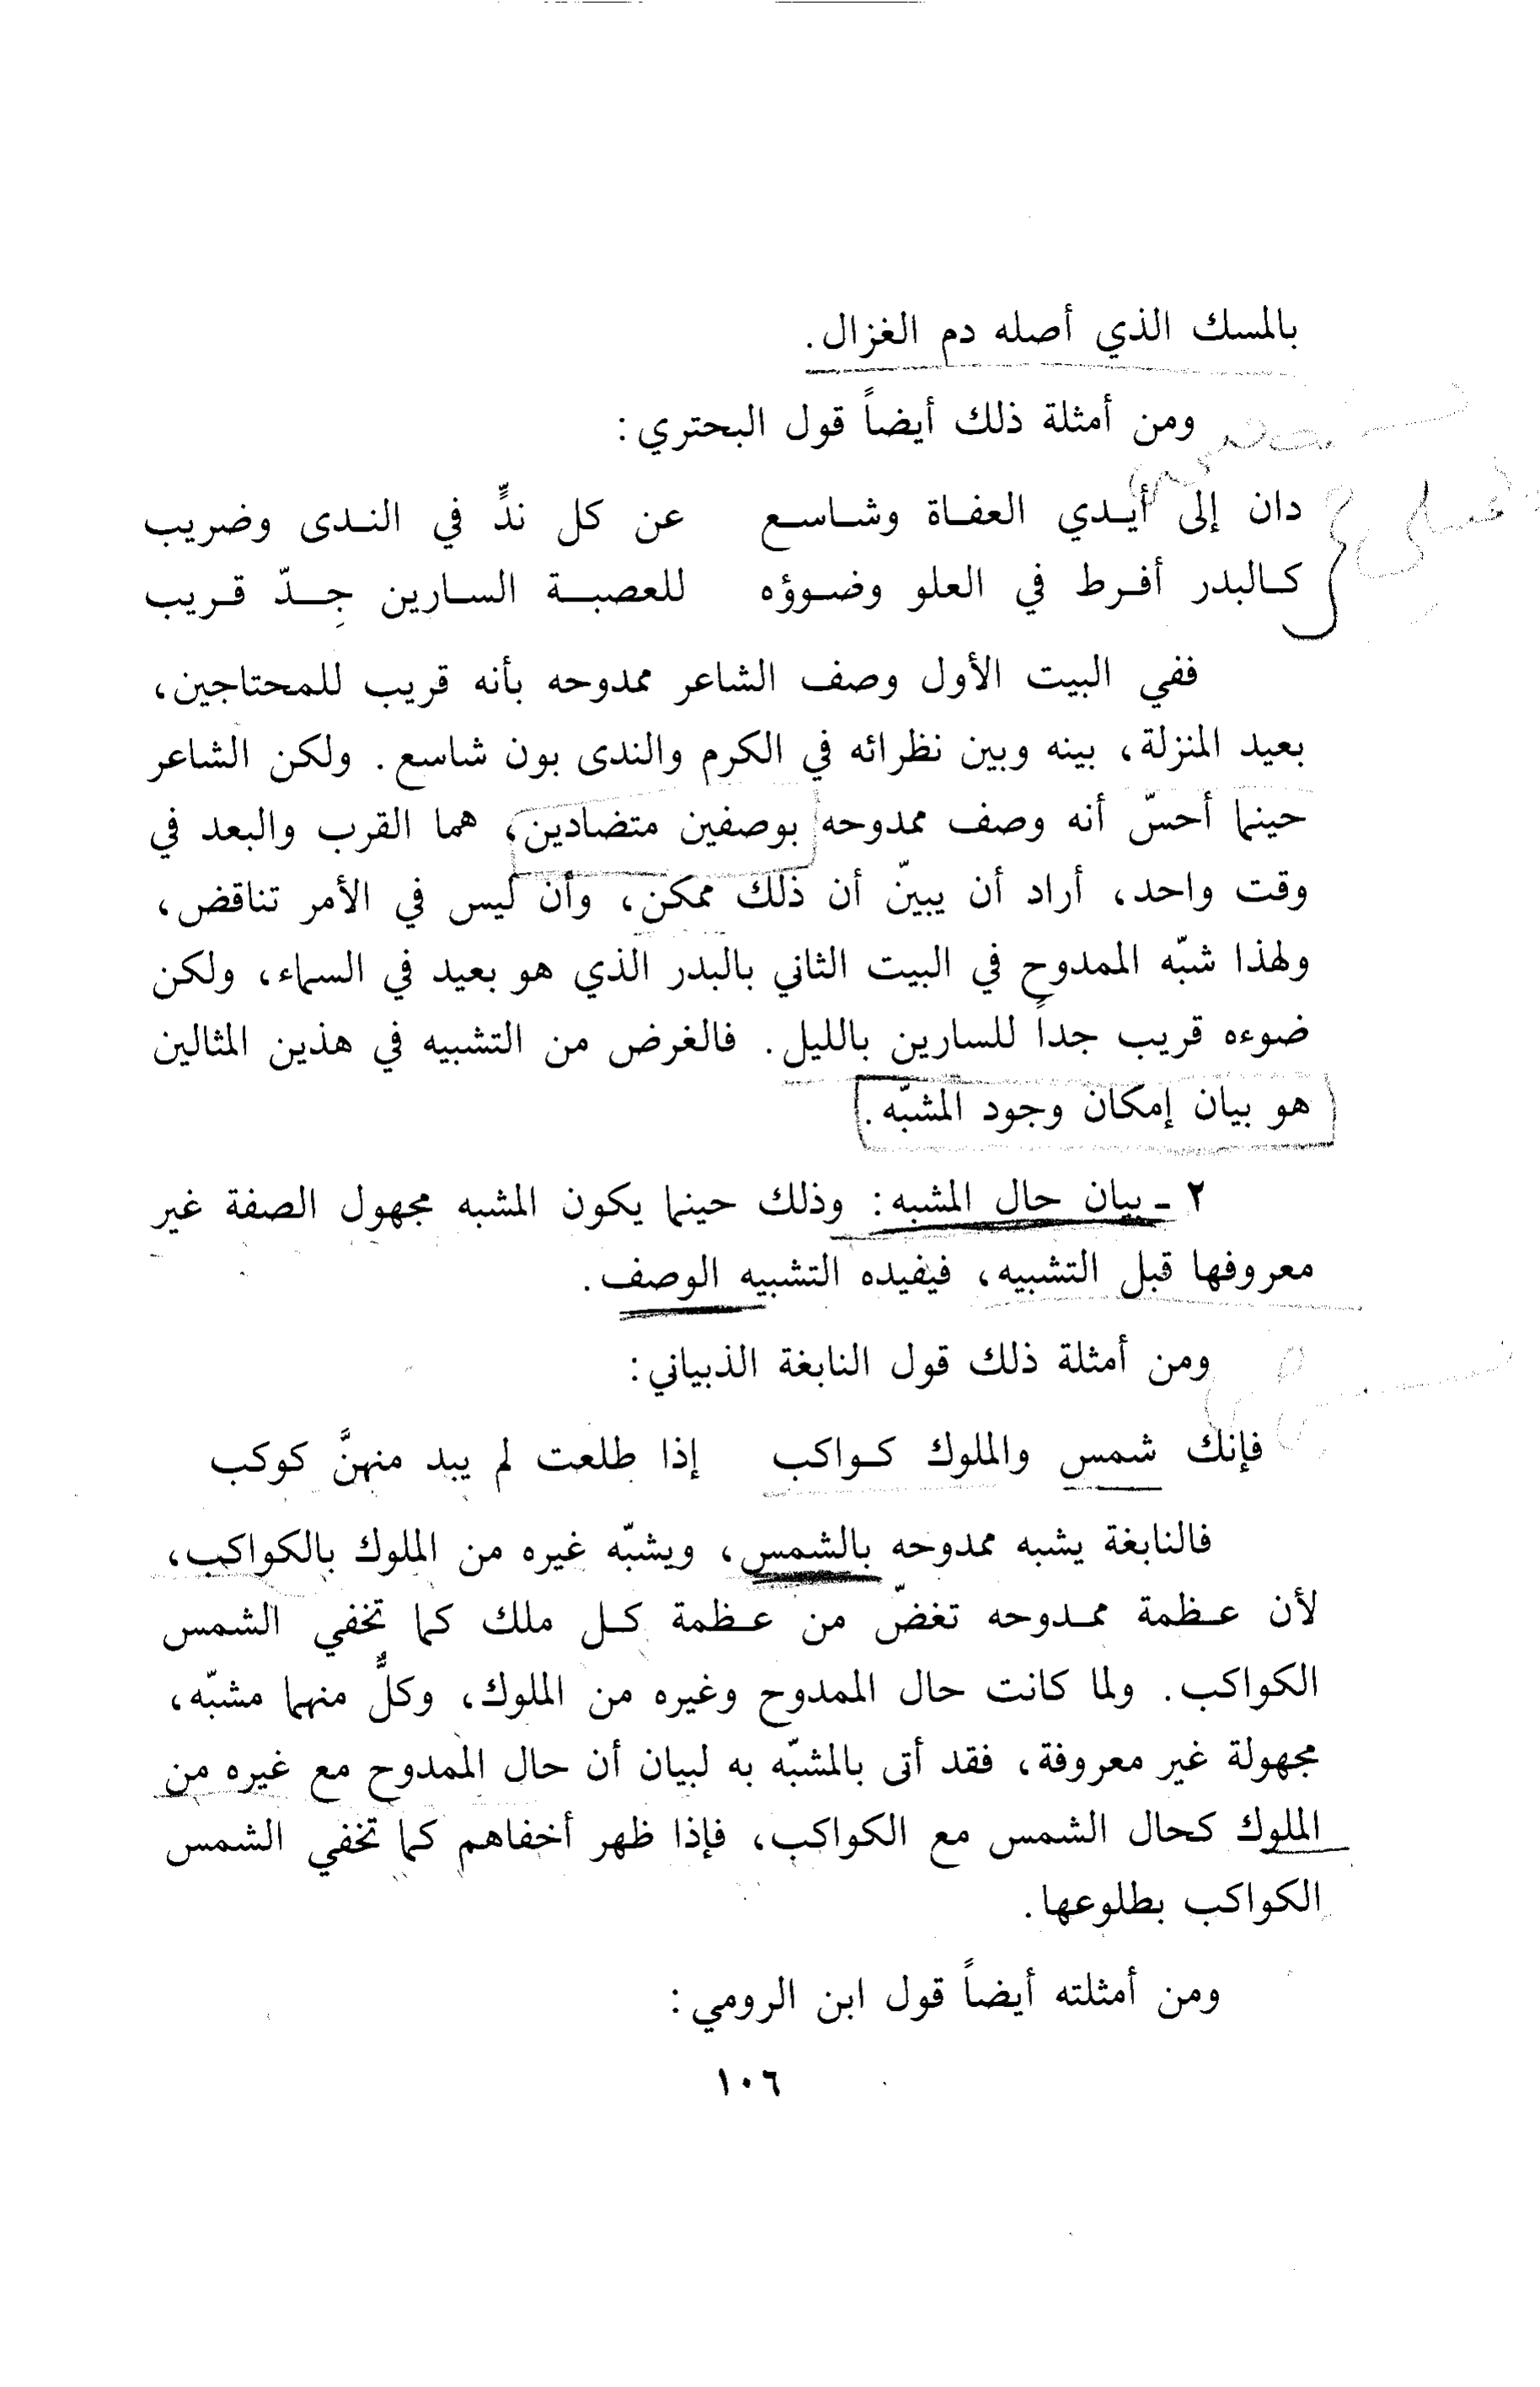 بالمسك الذي أصله دم الغزال.
ومن أمثلة ذلك أيضاً قول البحتري:
دان إلى أيـدي العفـاة وشـاسـع عن كل ندٍّ في النـدى وضريب
كـالبدر أفـرط في العلو وضـوؤه للعصبـة السـارين جِـدّ قـريب
ففي البيت الأول وصف الشاعر ممدوحه بأنه قريب للمحتاجين،
بعيد المنزلة، بينه وبين نظرائه في الكرم والندى بون شاسع. ولكن الشاعر
حينما أحسّ أنه وصف ممدوحه بوصفين متضادين، هما القرب والبعد في
وقت واحد، أراد أن يبينّ أن ذلك ممكن، وأن ليس في الأمر تناقض،
ولهذا شبّه الممدوح في البيت الثاني بالبدر الذي هو بعيد في السماء، ولكن
ضوءه قريب جداً للسارين بالليل. فالغرض من التشبيه في هذين المثالين
هو بيان إمكان وجود المشبّه.
٢ ـ بيان حال المشبه: وذلك حينما يكون المشبه مجهول الصفة غير
معروفها قبل التشبيه، فيفيده التشبيه الوصف.
ومن أمثلة ذلك قول النابغة الذبياني:
فإنك شمس والملوك كـواكب إذا طلعت لم يبد منهنَّ كوكب
فالنابغة يشبه ممدوحه بالشمس، ويشبّه غيره من الملوك بالكواكب،
لأن عـظمة ممـدوحه تغضّ من عـظمة كـل ملك كما تخفي الشمس
الكواكب. ولما كانت حال الممدوح وغيره من الملوك، وكلٌّ منهما مشبّه،
مجهولة غير معروفة، فقد أتى بالمشبّه به لبيان أن حال الممدوح مع غيره من
الملوك كحال الشمس مع الكواكب، فإذا ظهر أخفاهم كما تخفي الشمس
الكواكب بطلوعها.
ومن أمثلته أيضاً قول ابن الرومي:
١٠٦